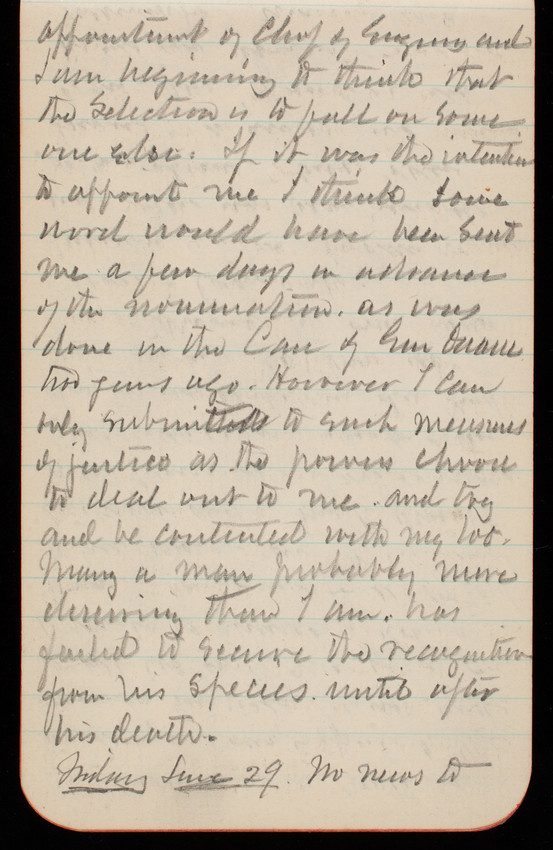 appointment of Chief of Engrs and
I am beginning to think that
the Selection is to fall on some
one else. If it was the intention
to appoint me I think some
word would have been sent
me a few days in advance
of the nomination. as was
done in the Case of Gen Duane
two years ago. However I can
only submit to such measures
of justice as the powers choose
to deal out to me. and try
and be contented with my lot.
Many a man probably more
deserving than I am. has
failed to secure the recognition
from his species. until after
his death.
Friday June 29. No news to